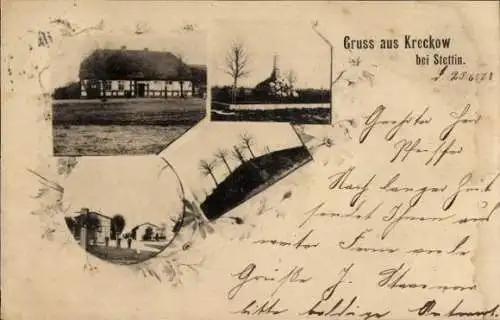 Gruss aus Kreckow
bei Stettin.
Geehrter Herr
Nach langer Zeit
sendet Ihnen aus
weiter Ferne viele
Grüße J.
bitte baldige Antwort.